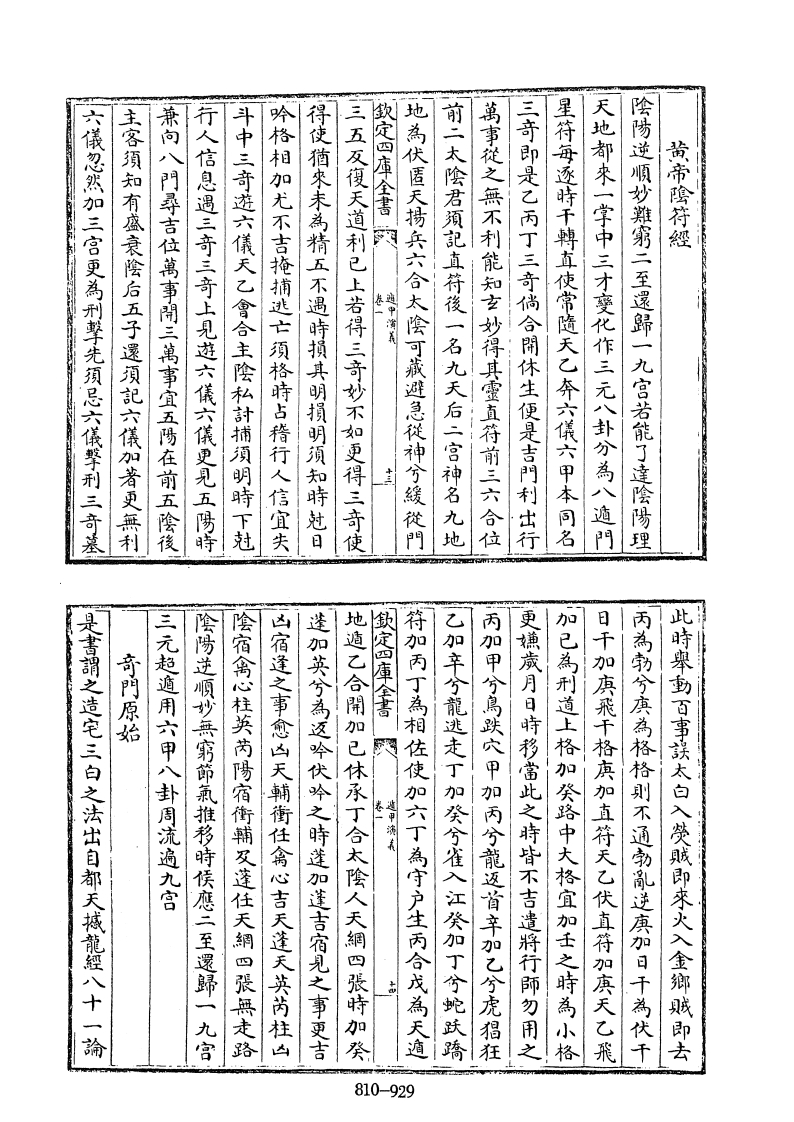 黄帝陰符經
陰陽逆順妙難窮二至還歸一九宫若能了達陰陽理
天地都來一掌中三才變化作三元八卦分為八遁門
星符每逐時干轉直使常隨天乙奔六儀六甲本同名
三奇即是乙丙丁三奇倘合開休生便是吉門利出行
萬事從之無不利能知玄妙得其靈直符前三六合位
前二太陰君須記直符後一名九天后二宫神名九地
地為伏匿天揚兵六合太陰可藏避急從神兮緩從門
欽定四庫全書
遁甲演義
卷一
十三
三五反復天道利已上若得三奇妙不如更得三奇使
得使猶來未為精五不遇時損其明損明須知時尅日
吟格相加尤不吉掩捕逃亡須格時占稽行人信宜失
斗中三奇遊六儀天乙會合主陰私討捕須明時下尅
行人信息遇三奇三奇上見遊六儀六儀更見五陽時
兼向八門尋吉位萬事開三萬事宜五陽在前五陰後
主客須知有盛衰陰后五子還須記六儀加著更無利
六儀忽然加三宫更為刑擊先須忌六儀擊刑三奇墓
此時舉動百事誤太白入熒賊即來火入金鄉賊即去
丙為勃兮庚為格格則不通勃亂逆庚加日干為伏干
日干加庚飛干格庚加直符天乙伏直符加庚天乙飛
加已為刑道上格加癸路中大格宜加壬之時為小格
更嫌歲月日時移當此之時皆不吉遣將行師勿用之
丙加甲兮鳥跌穴甲加丙兮龍返首辛加乙兮虎猖狂
乙加辛兮龍逃走丁加癸兮雀入江癸加丁兮蛇跃蹻
符加丙丁為相佐使加六丁為守户生丙合戊為天遁
欽定四庫全書
遁甲演義
卷一
十四
地遁乙合開加已休承丁合太陰人天網四張時加癸
蓬加英兮為返吟伏吟之時蓬加蓬吉宿見之事更吉
凶宿逢之事愈凶天輔衝任禽心吉天蓬天英芮柱凶
陰宿禽心柱英芮陽宿衝輔及蓬任天網四張無走路
陰陽逆順妙無窮節氣推移時候應二至還歸一九宫
三元超遁用六甲八卦周流遍九宫
奇門原始
是書謂之造宅三白之法出自都天撼龍經八十一論
810-929